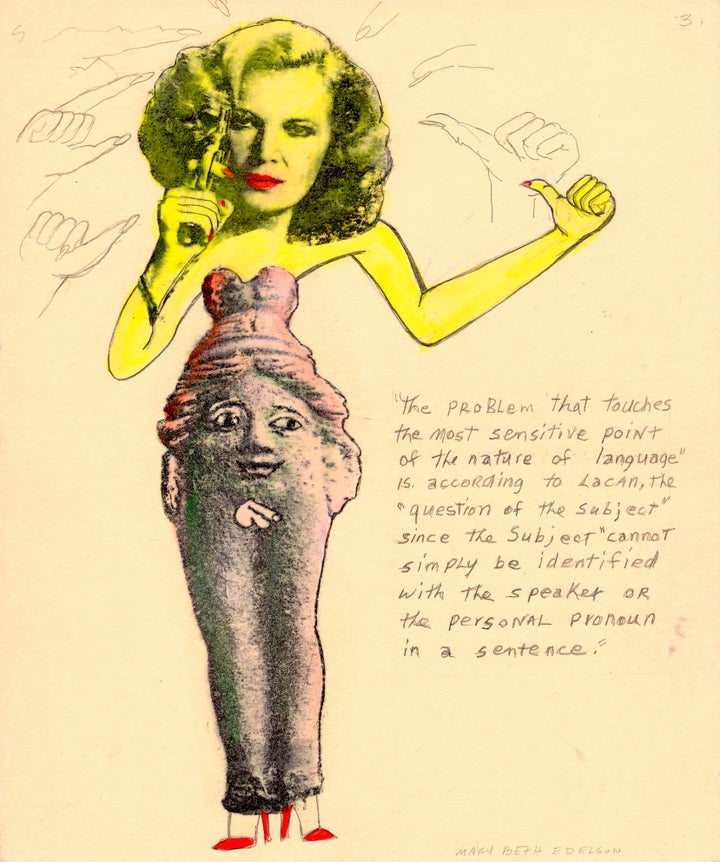 3.
"The PROBLEM that touches
the most sensitive point
of the nature of language"
is according to Lacan, the
"question of the subject"
since the Subject "cannot
simply be identified
with the speaker or
the personal pronoun
in a sentence."
MARY BETH EDELSON